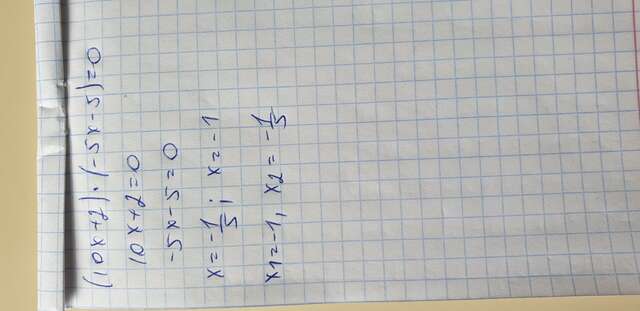 (10x+2)·(-5x-5)=0
10x+2=0
-5x-5=0
x=-1/5; x=-1
x1=-1, x2=-1/5